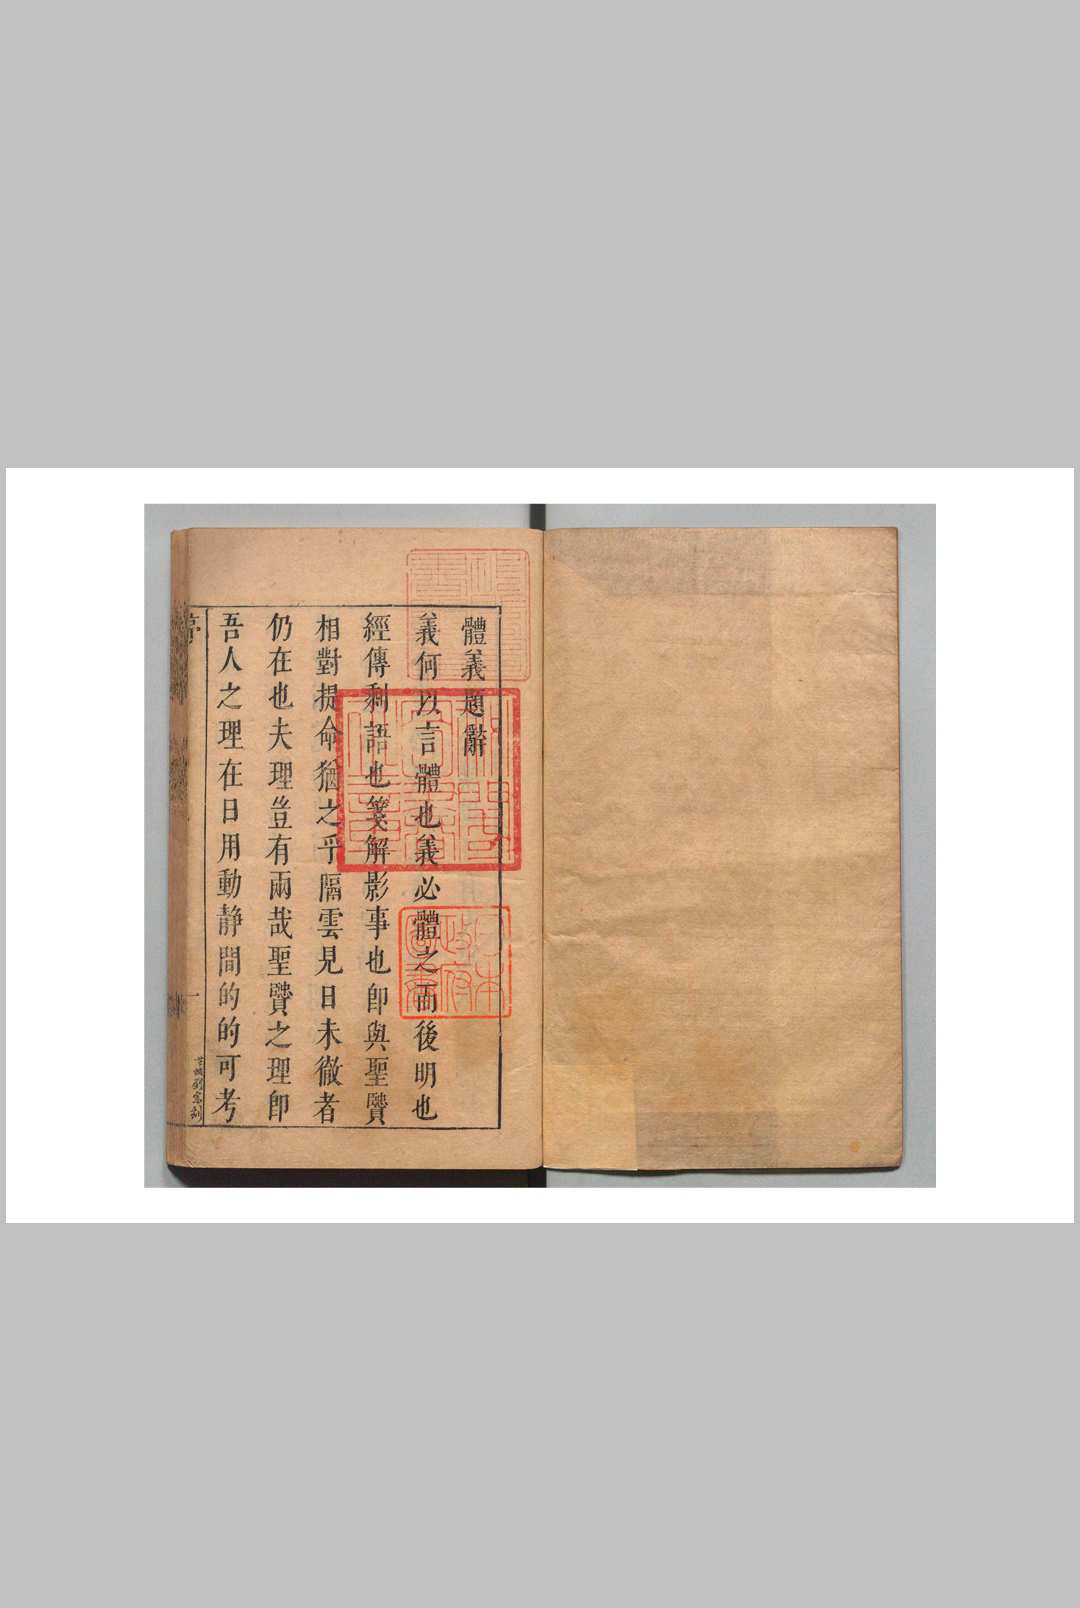 體義題辭
義何以言體也義必體之而後明也
經傳剩語也箋解影事也卽與聖贒
相對提命猶之乎隔雲見日未徹者
仍在也夫理豈有兩哉聖贒之理卽
吾人之理在日用動靜間的的可考
序
一
日本
政府
圖書